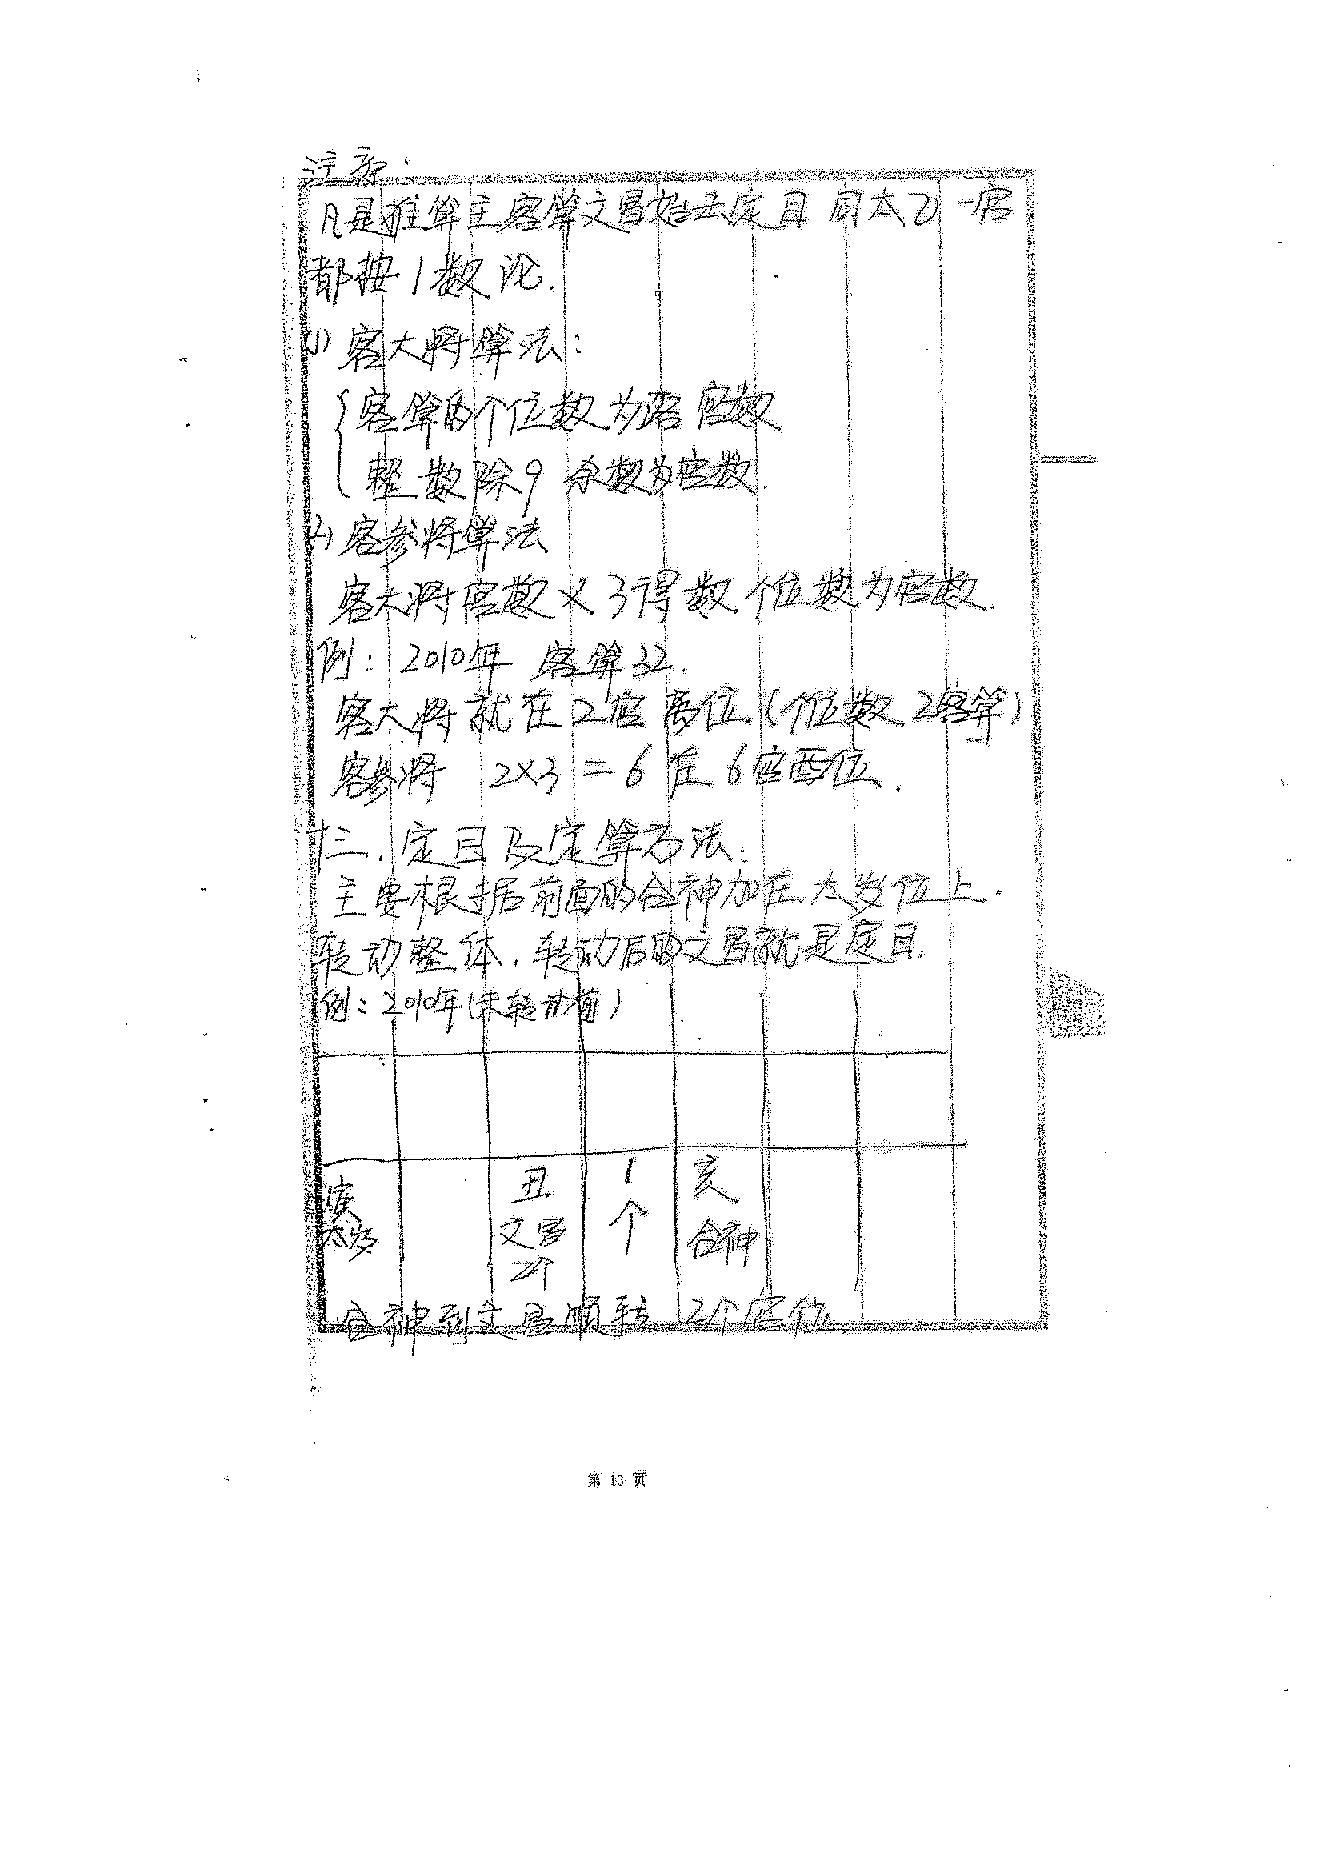 注意：
凡是推算主客算文昌始击定目同太乙一宫
都按1数论.
1) 客大将算法：
客算的个位数为宫数
整数除9 余数为宫数.
2) 客参将算法
客大将宫数×3得数个位数为宫数.
例：2010年 客算32.
客大将就在2宫离位.(个位数2客算)
客参将 2×3=6 在6宫酉位.
十三.定目及定算方法：
主要根据前面的合神加在太岁位上.
转动整体.转动后的文昌就是定目.
例：2010年(未转动前)
寅 丑 1 亥
太岁 文昌 个 合神
2个
合神到文昌顺转2个宫位.
第 13 页